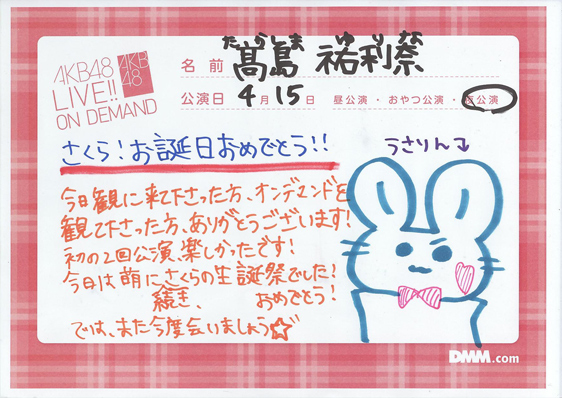 AKB48
LIVE!!
ON DEMAND
AKB
48
たかしま ゆりな
名前 髙島 祐利奈
公演日 4月15日 昼公演・おやつ公演・夜公演
さくら!お誕日おめでとう!!
うさりん
今日観に来て下さった方、オンデマンドを
観て下さった方、ありがとうございます!
初の2回公演、楽しかったです!
今日は萌にさくらの生誕祭でした!
続き、 おめでとう!
では、また今度会いましょう☆
DMM.com